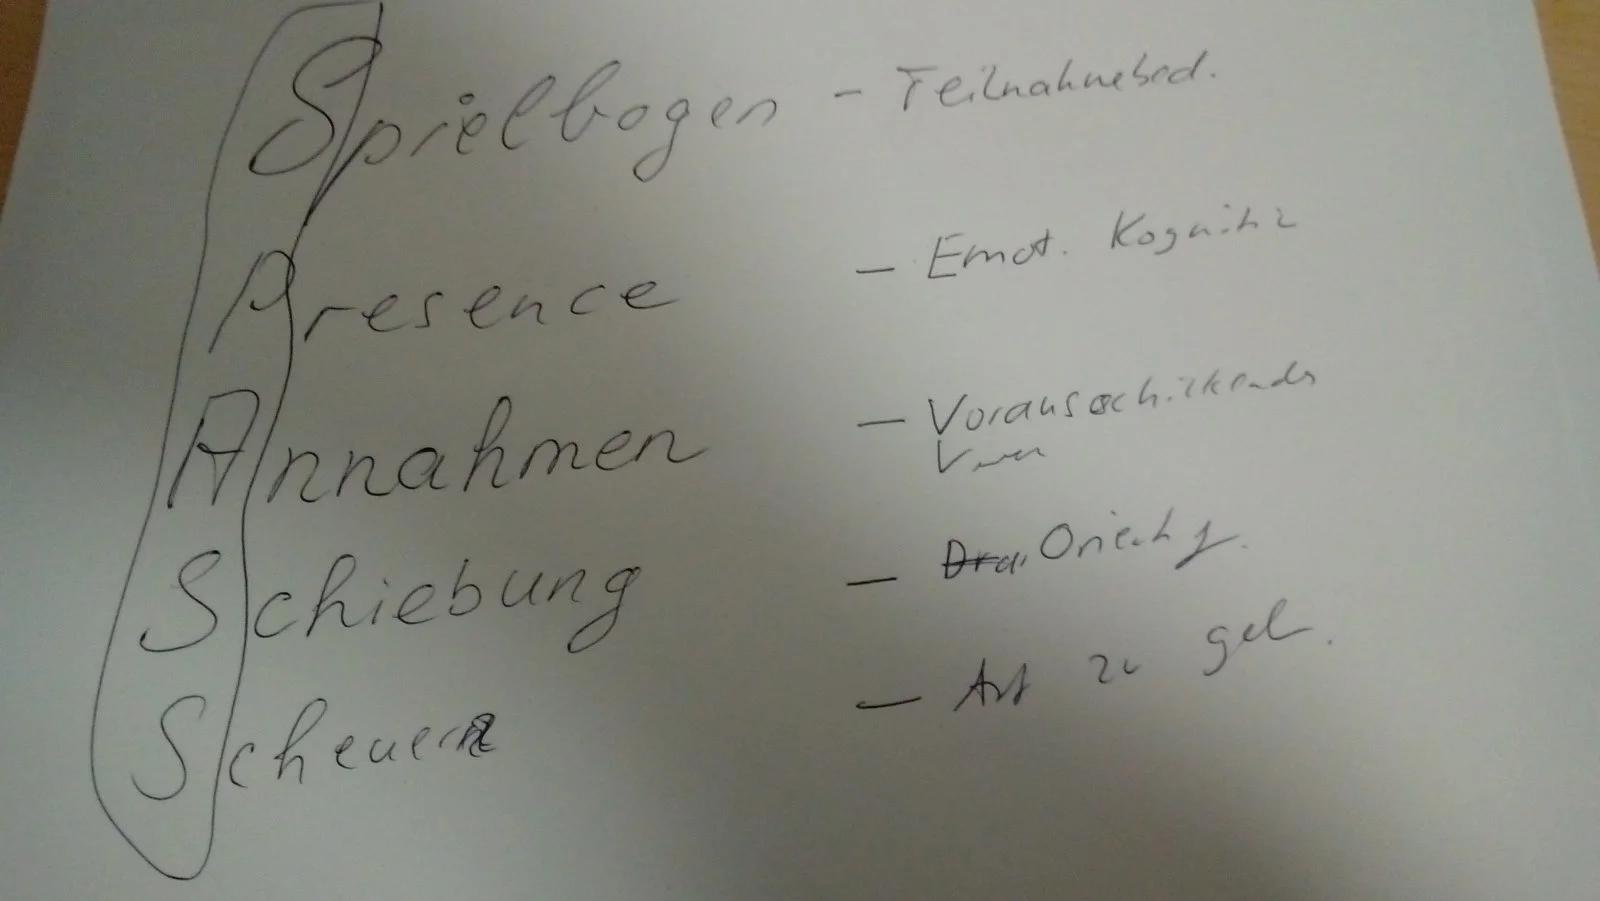 Spielbogen - Teilnahmebed.
Presence - Emot. Kognitiv
Annahmen - Vorausschickendes
Schiebung -
Scheuer - Art zu gel.